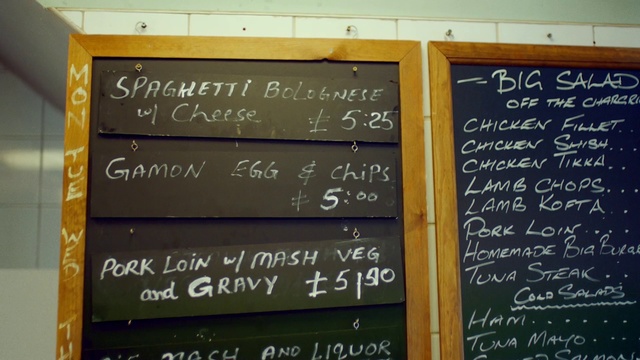 MON TUE WED TH
SPAGHETTI BOLOGNESE
w/ Cheese £5.25
GAMON EGG & CHIPS
£5:00
PORK LOIN w/ MASH VEG
and GRAVY £5/90
MASH AND LIQUOR
— BIG SALAD
OFF THE CHARGR
CHICKEN FILLET..
CHICKEN SHISH..
CHICKEN TIKKA..
LAMB CHOPS...
LAMB KOFTA..
PORK LOIN...
HOMEMADE BIG BURGE
TUNA STEAK...
COLD SALADS
HAM.......
TUNA MAYO...